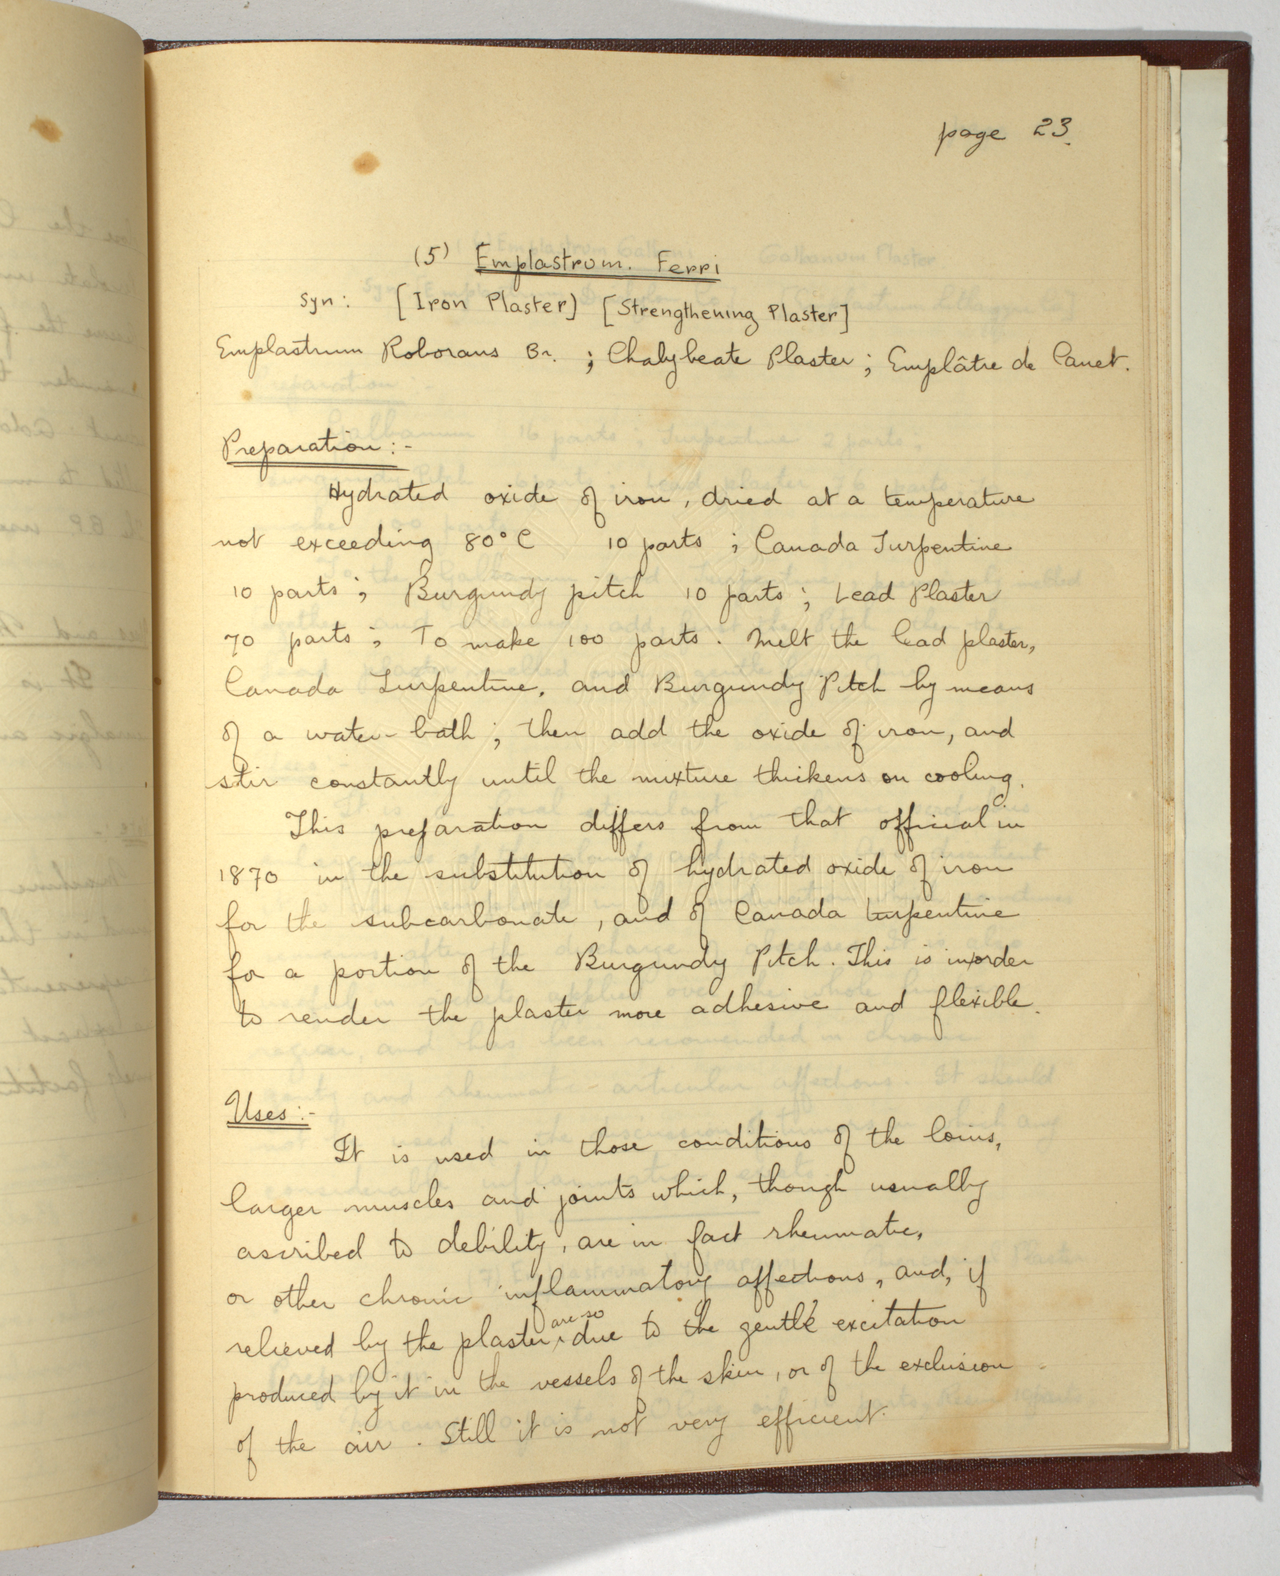 page 23.
(5) Emplastrum. Ferri
Syn: [Iron Plaster) [Strengthening Plaster]
Emplastrum Roborans Br. ; Chalybeate Plaster ; Emplâtre de Canet.
Preparation :-
Hydrated oxide of iron, dried at a temperature
not exceeding 80°C 10 parts ; Canada Turpentine
10 parts ; Burgundy pitch 10 parts ; Lead Plaster
70 parts ; To make 100 parts. Melt the lead plaster,
Canada Turpentine, and Burgundy Pitch by means
of a water-bath ; then add the oxide of iron, and
stir constantly until the mixture thickens on cooling.
This preparation differs from that official in
1870 in the substitution of hydrated oxide of iron
for the subcarbonate, and of Canada turpentine
for a portion of the Burgundy Pitch. This is in order
to render the plaster more adhesive and flexible.
Uses :-
It is used in those conditions of the loins,
larger muscles and joints which, though usually
ascribed to debility, are in fact rheumatic,
or other chronic inflammatory affections, and, if
relieved by the plaster, are so due to the gentle excitation
produced by it in the vessels of the skin, or of the exclusion
of the air. Still it is not very efficient.